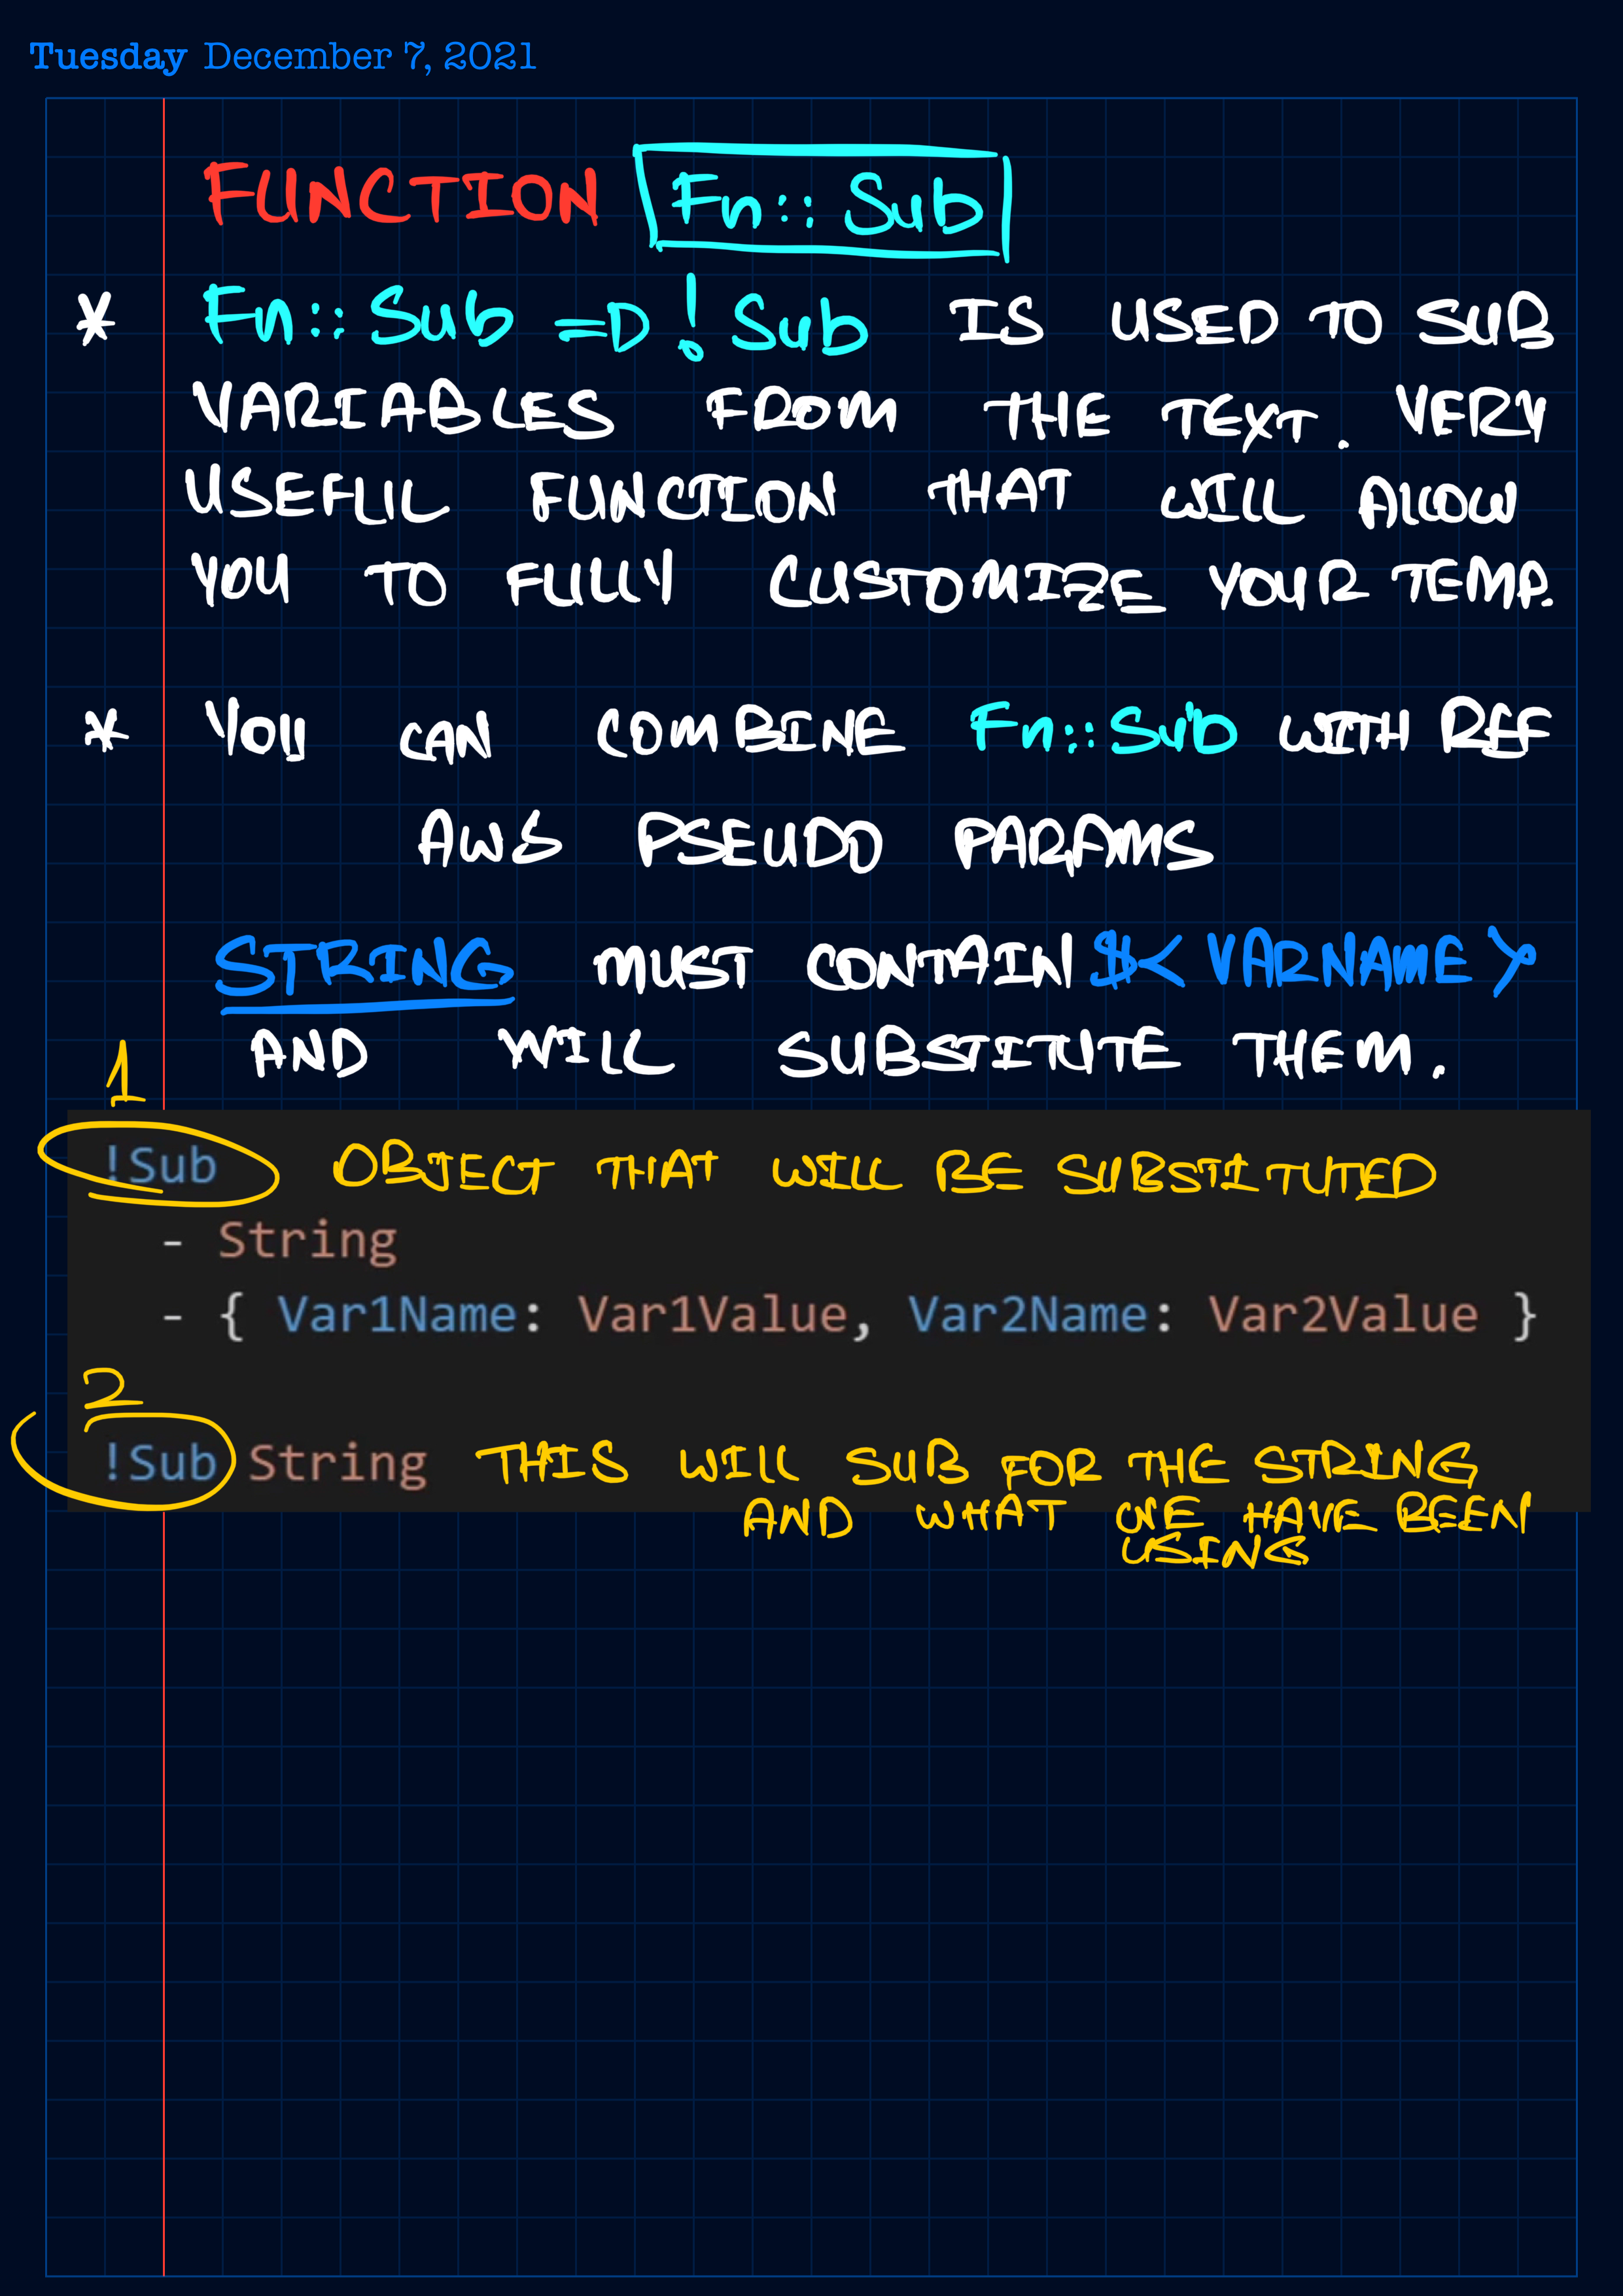 Tuesday December 7, 2021
FUNCTION Fn::Sub
* Fn::Sub => !Sub IS USED TO SUB
VARIABLES FROM THE TEXT. VERY
USEFUL FUNCTION THAT WILL ALLOW
YOU TO FULLY CUSTOMIZE YOUR TEMP.
* YOU CAN COMBINE Fn::Sub WITH REF
AWS PSEUDO PARAMS
STRING MUST CONTAIN ${VARNAME}
AND WILL SUBSTITUTE THEM.
1
!Sub OBJECT THAT WILL BE SUBSTITUTED
- String
- { Var1Name: Var1Value, Var2Name: Var2Value }
2
!Sub String THIS WILL SUB FOR THE STRING
AND WHAT WE HAVE BEEN
USING